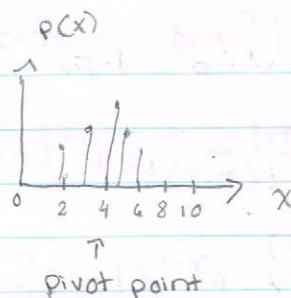 p(x)
0 2 4 6 8 10 X
pivot point